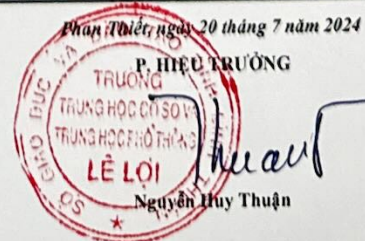 Phan Thiết, ngày 20 tháng 7 năm 2024
P. HIỆU TRƯỞNG
SỞ GIÁO DỤC VÀ
TRƯỜNG
TRUNG HỌC CƠ SỞ VÀ
TRUNG HỌC PHỔ THÔNG
LÊ LỢI
Thuận
Nguyễn Huy Thuận